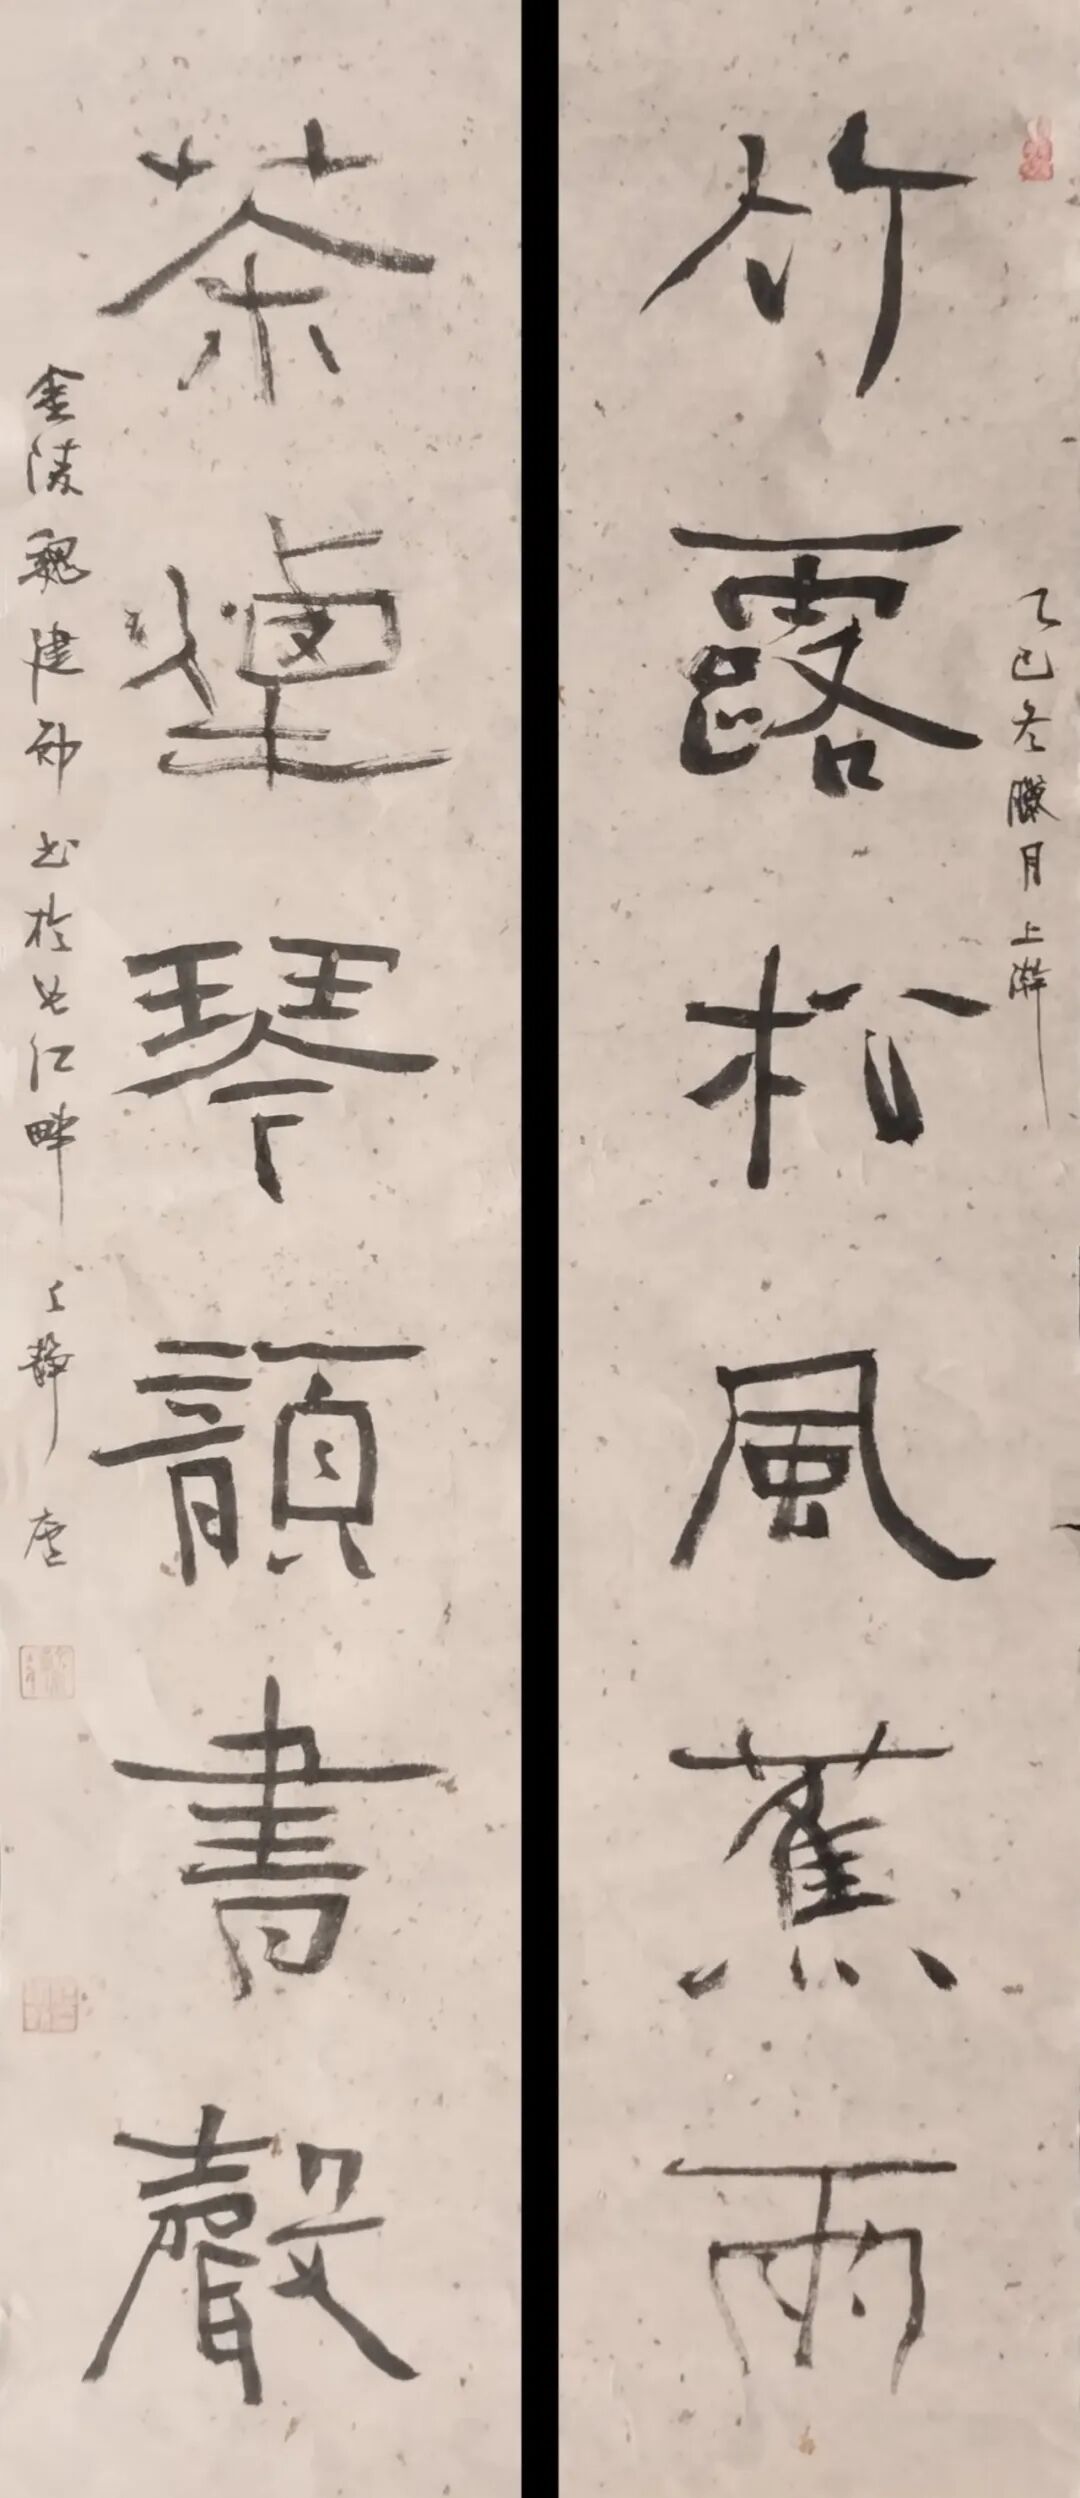 竹露松風蕉雨
乙巳冬臘月上澣
茶煙琴韻書聲
金陵魏建
書於
江畔
靜廬